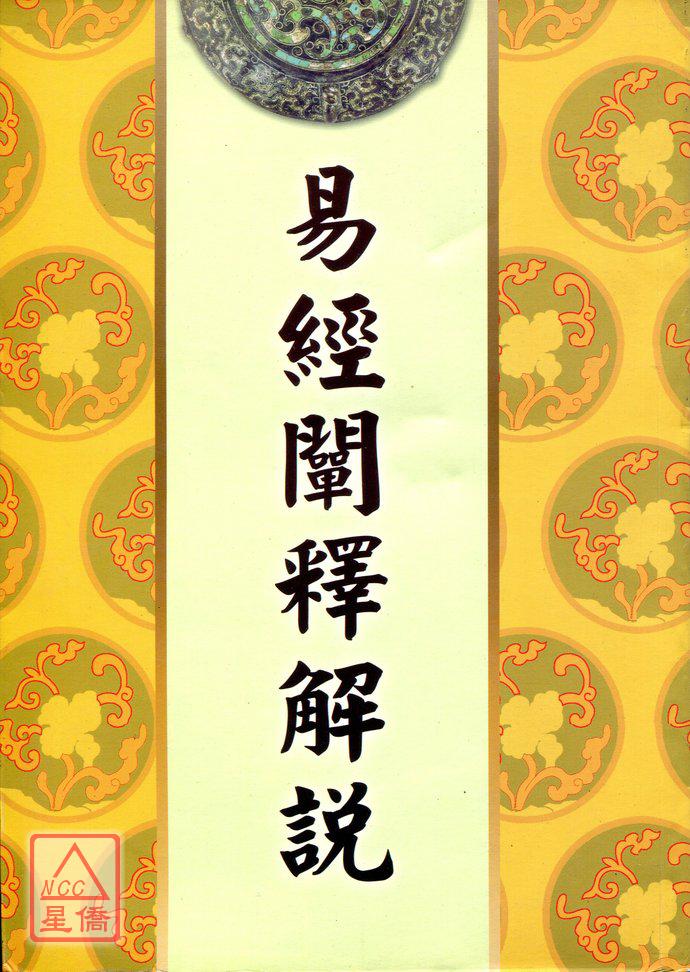 易經闡釋解說
NCC
星僑